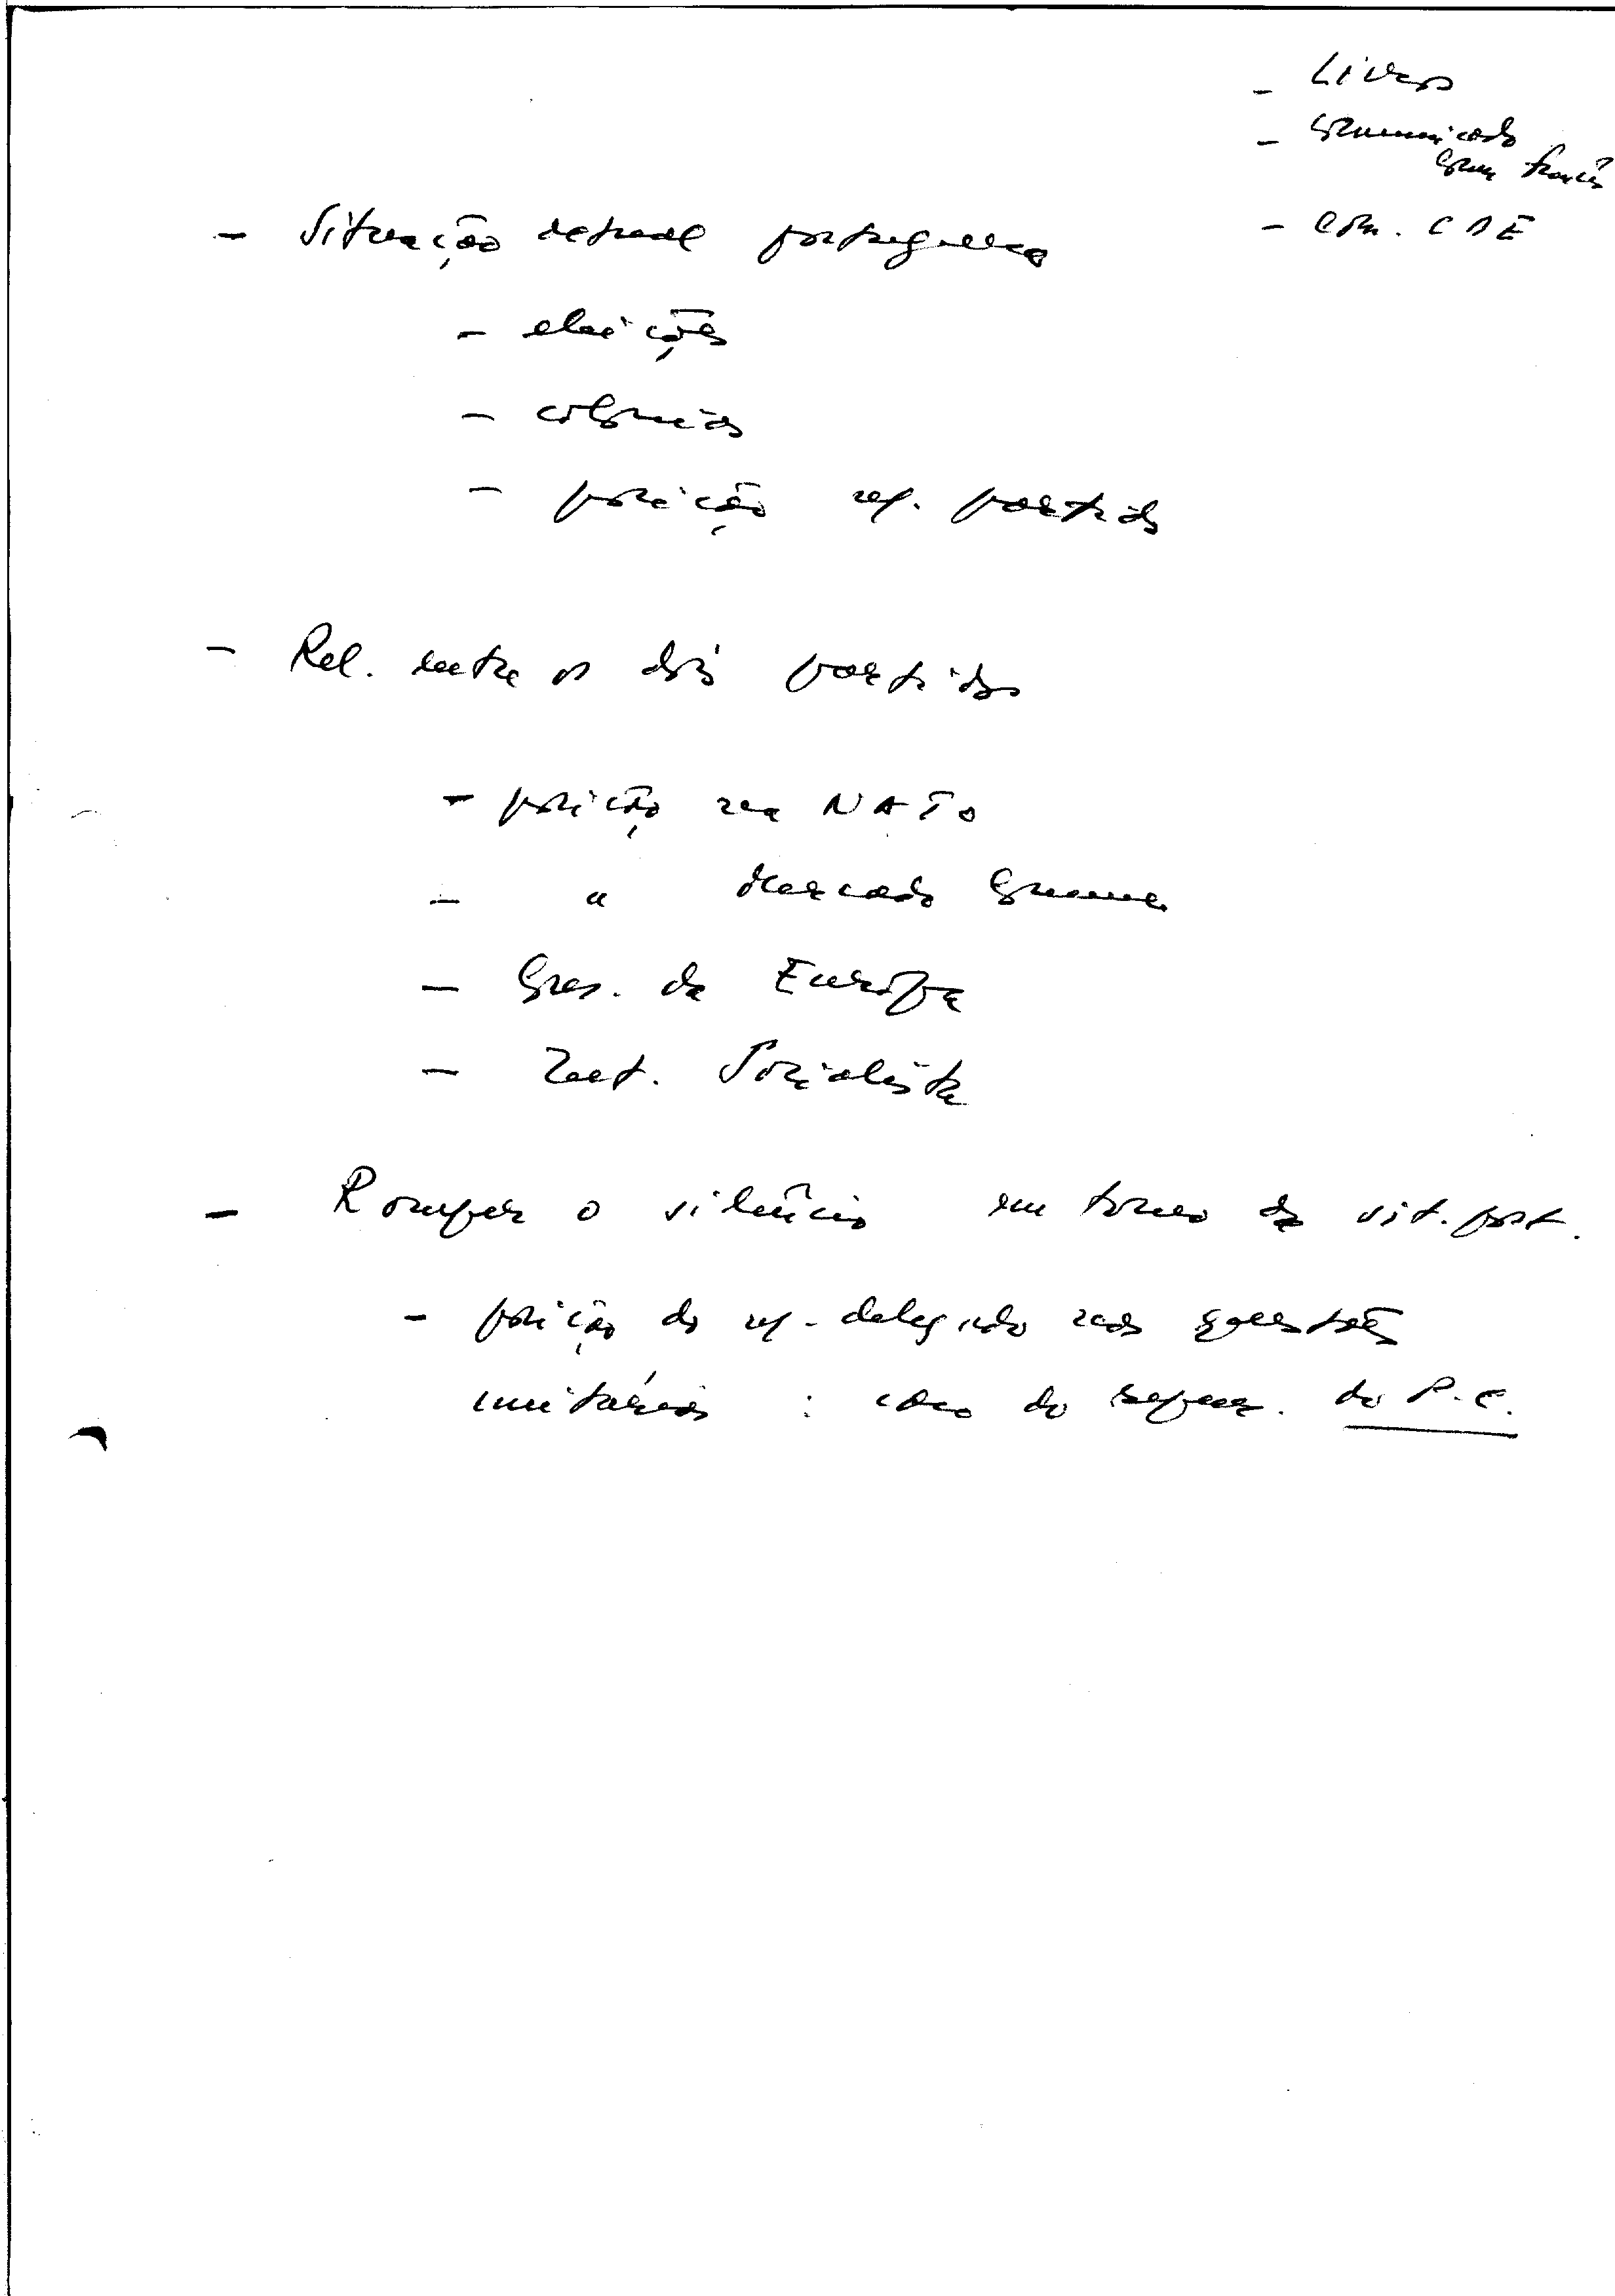 - Livros
- Comunicado
com francês
- Com. CDE
- Situação actual portuguesa
- eleições
- colónias
- posição resp. partidos
- Rel. entre os dois partidos
- posição na NATO
- " Mercado Comum
- Cons. da Europa
- Int. Socialista
- Romper o silêncio em torno da sit. port.
- posição do delegado nas questões
unitárias : caso do do P.C.